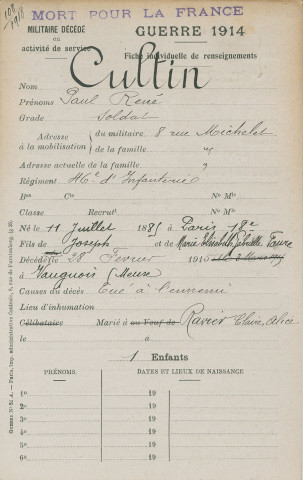 108
1918
MORT POUR LA FRANCE
MILITAIRE DÉCÉDÉ
en
activité de service
GUERRE 1914
Fiche individuelle de renseignements
Nom Cultin
Prénoms Paul René
Grade Soldat
Adresse à la mobilisation du militaire 8 rue Michelet
de la famille "
Adresse actuelle de la famille "
Régiment 46e d'Infanterie
Bon Cie No Mle
Classe Recrut. No Mle
Né le 11 Juillet 1885 à Paris 18e
Fils de Joseph et de Marie Elisabeth Faure
Décédé le 28 Fevrier 1915
à Vauquois (Meuse)
Causes du décès Tué à l'ennemi
Lieu d'inhumation
Célibataire Marié à ou Veuf de Ravier Claire, Alice
le à
1 Enfants
PRÉNOMS. DATES ET LIEUX DE NAISSANCE
1o 19 19
2o 19 19
3o 19 19
4o 19 19
5o 19 19
6o 19 19